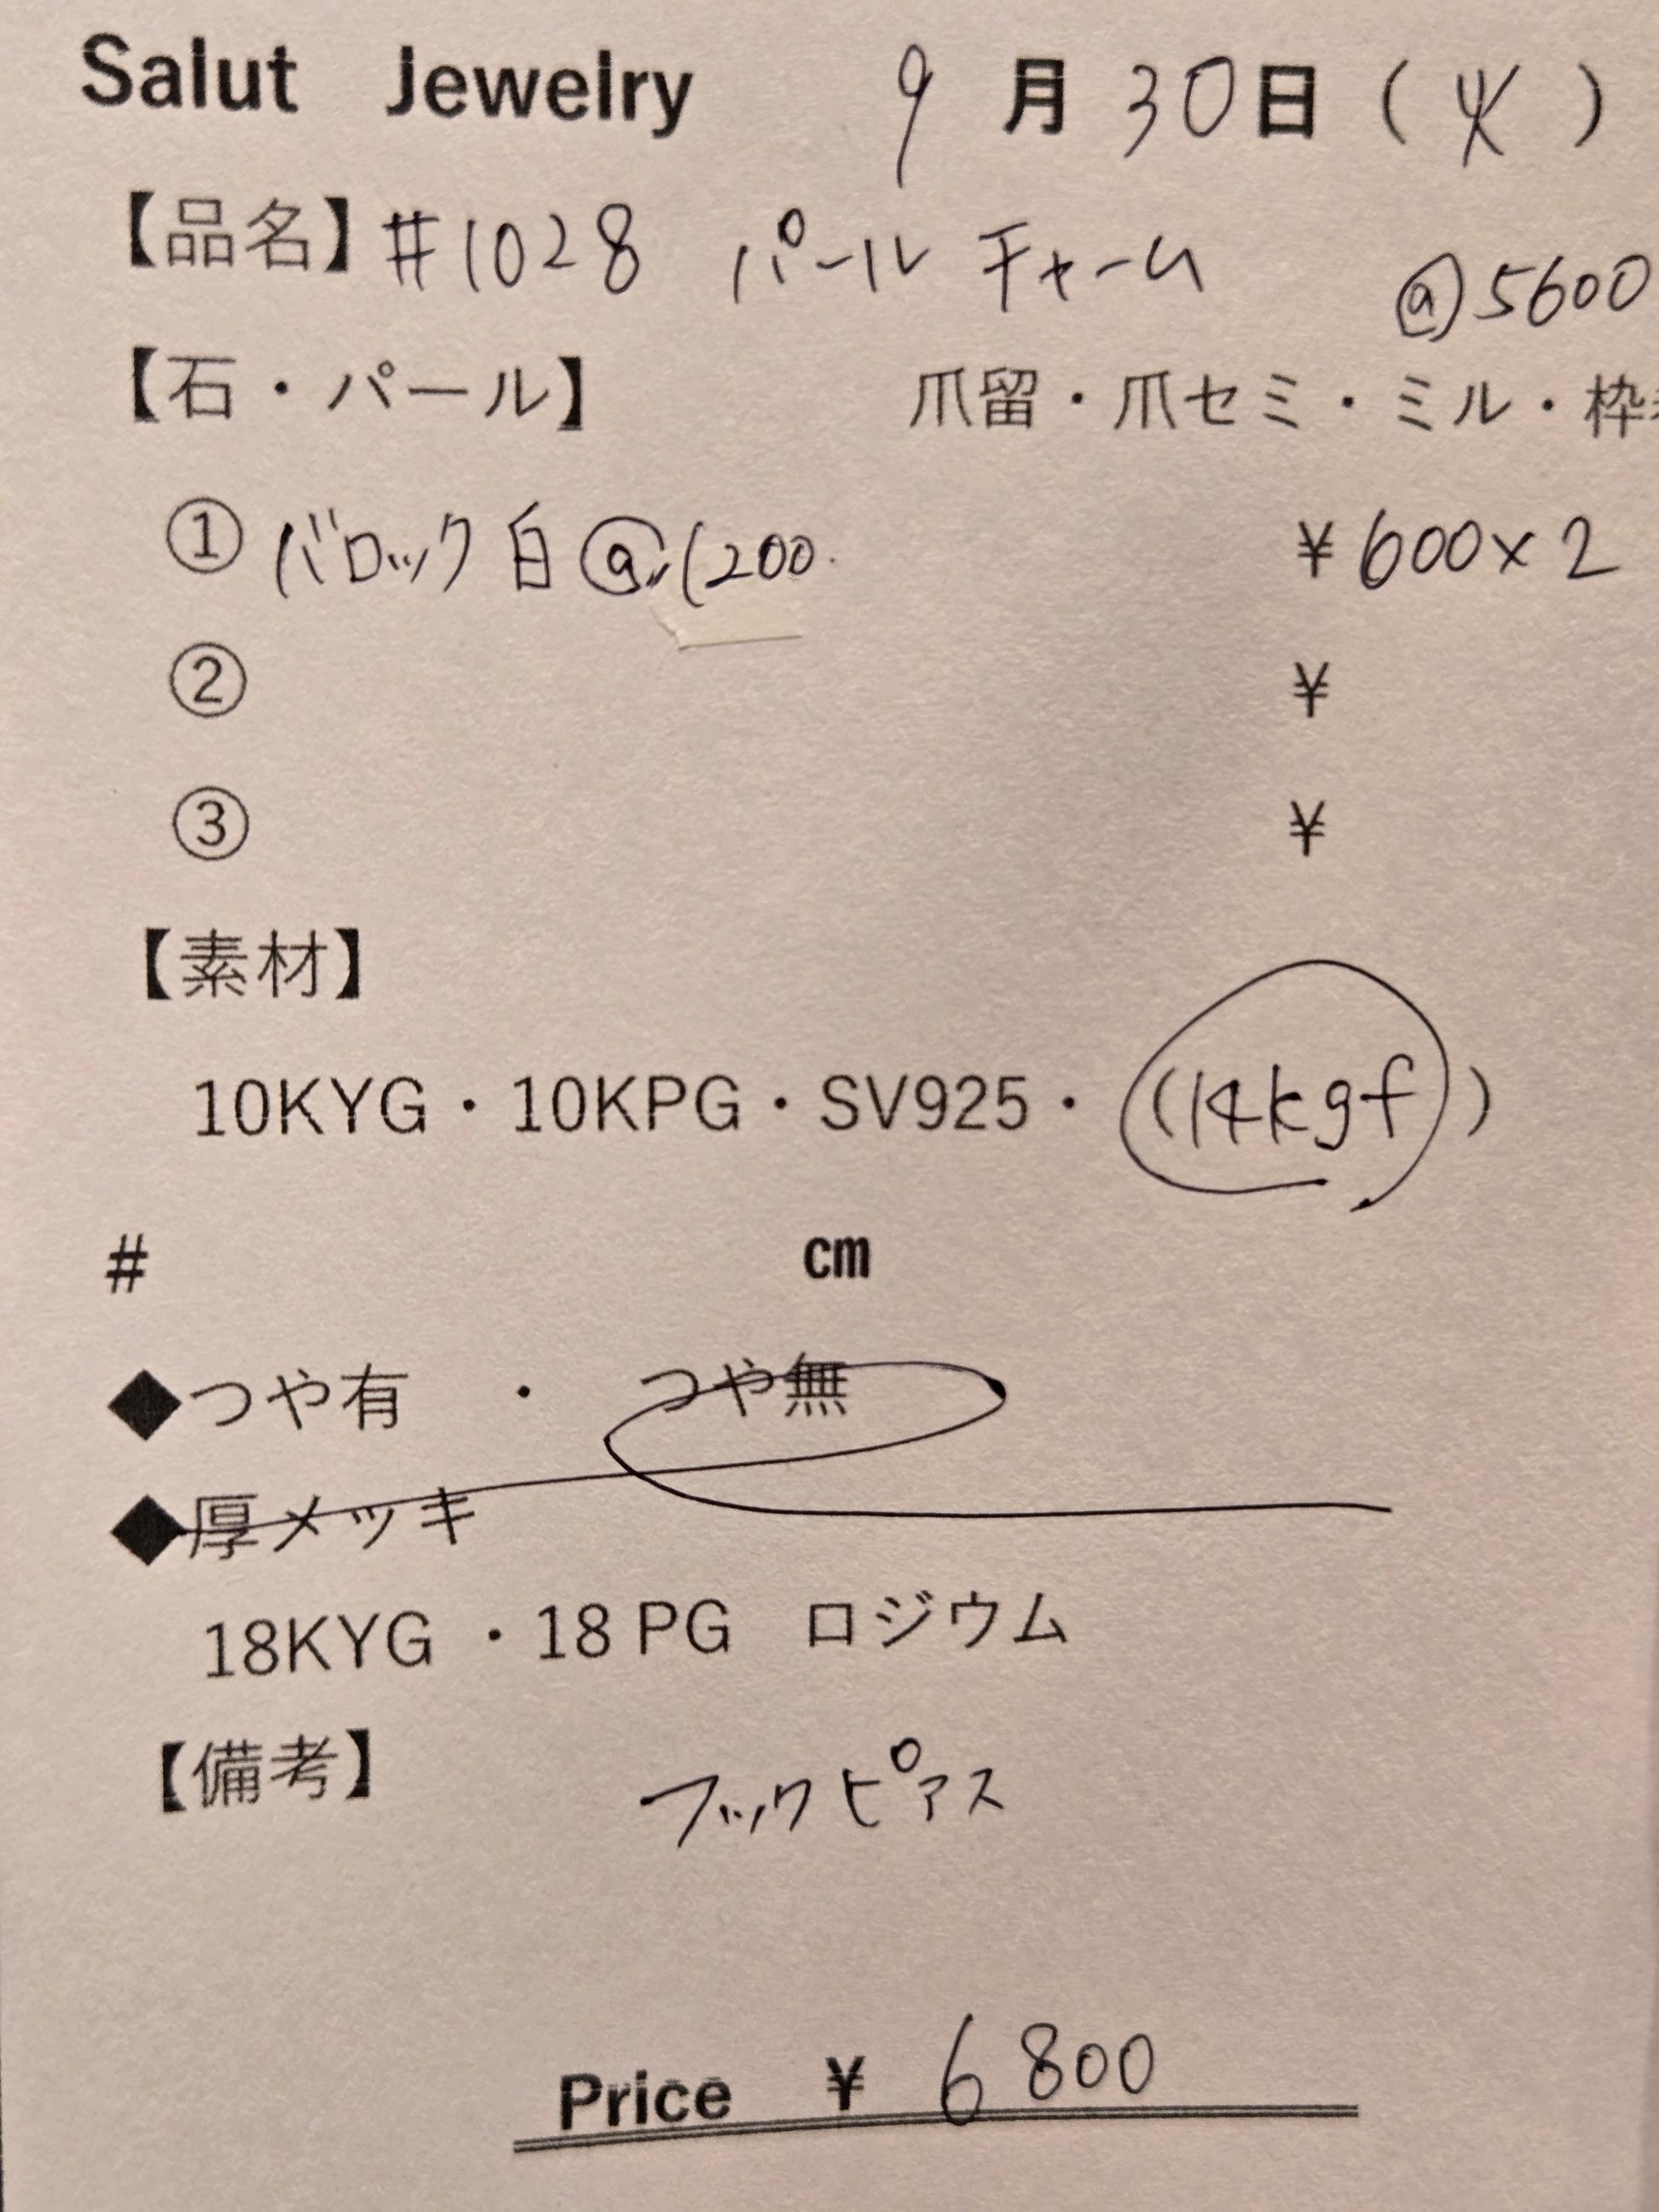 Salut Jewelry 9月30日(火)
【品名】#1028 パールチャーム @5600
【石・パール】 爪留・爪セミ・ミル・枠
①バロック白@1200. ¥600×2
② ¥
③ ¥
【素材】
10KYG・10KPG・SV925・(14kgf)
# cm
◆つや有 ・ つや無
◆厚メッキ
18KYG ・18 PG ロジウム
【備考】 フックピアス
Price ¥ 6800